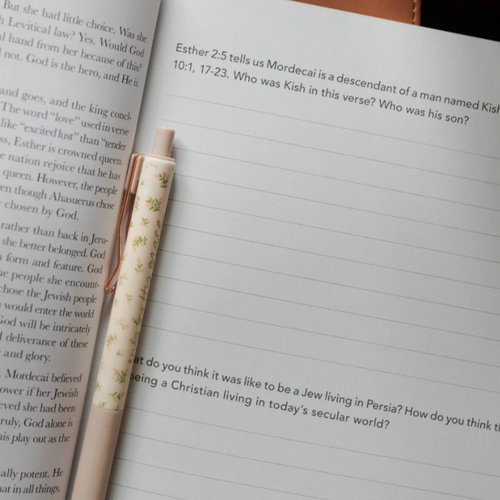 But she had little choice. Was she
Levitical law? Yes. Would God
hand from her because of this?
not. God is the hero, and He is
and goes, and the king concl-
The word “love” used in verse
like “excited lust” than “tender
Esther is crowned queen.
nation rejoice that he has
queen. However, the people
though Ahasuerus chose
chosen by God.
rather than back in Jeru-
she better belonged. God
form and feature. God
people she encount-
chose the Jewish people
would enter the world
God will be intricately
deliverance of these
and glory.
Mordecai believed
if her Jewish
she had been
God alone is
play out as the
potent. He
in all things.
Esther 2:5 tells us Mordecai is a descendant of a man named Kish
10:1, 17-23. Who was Kish in this verse? Who was his son?
do you think it was like to be a Jew living in Persia? How do you think
being a Christian living in today’s secular world?